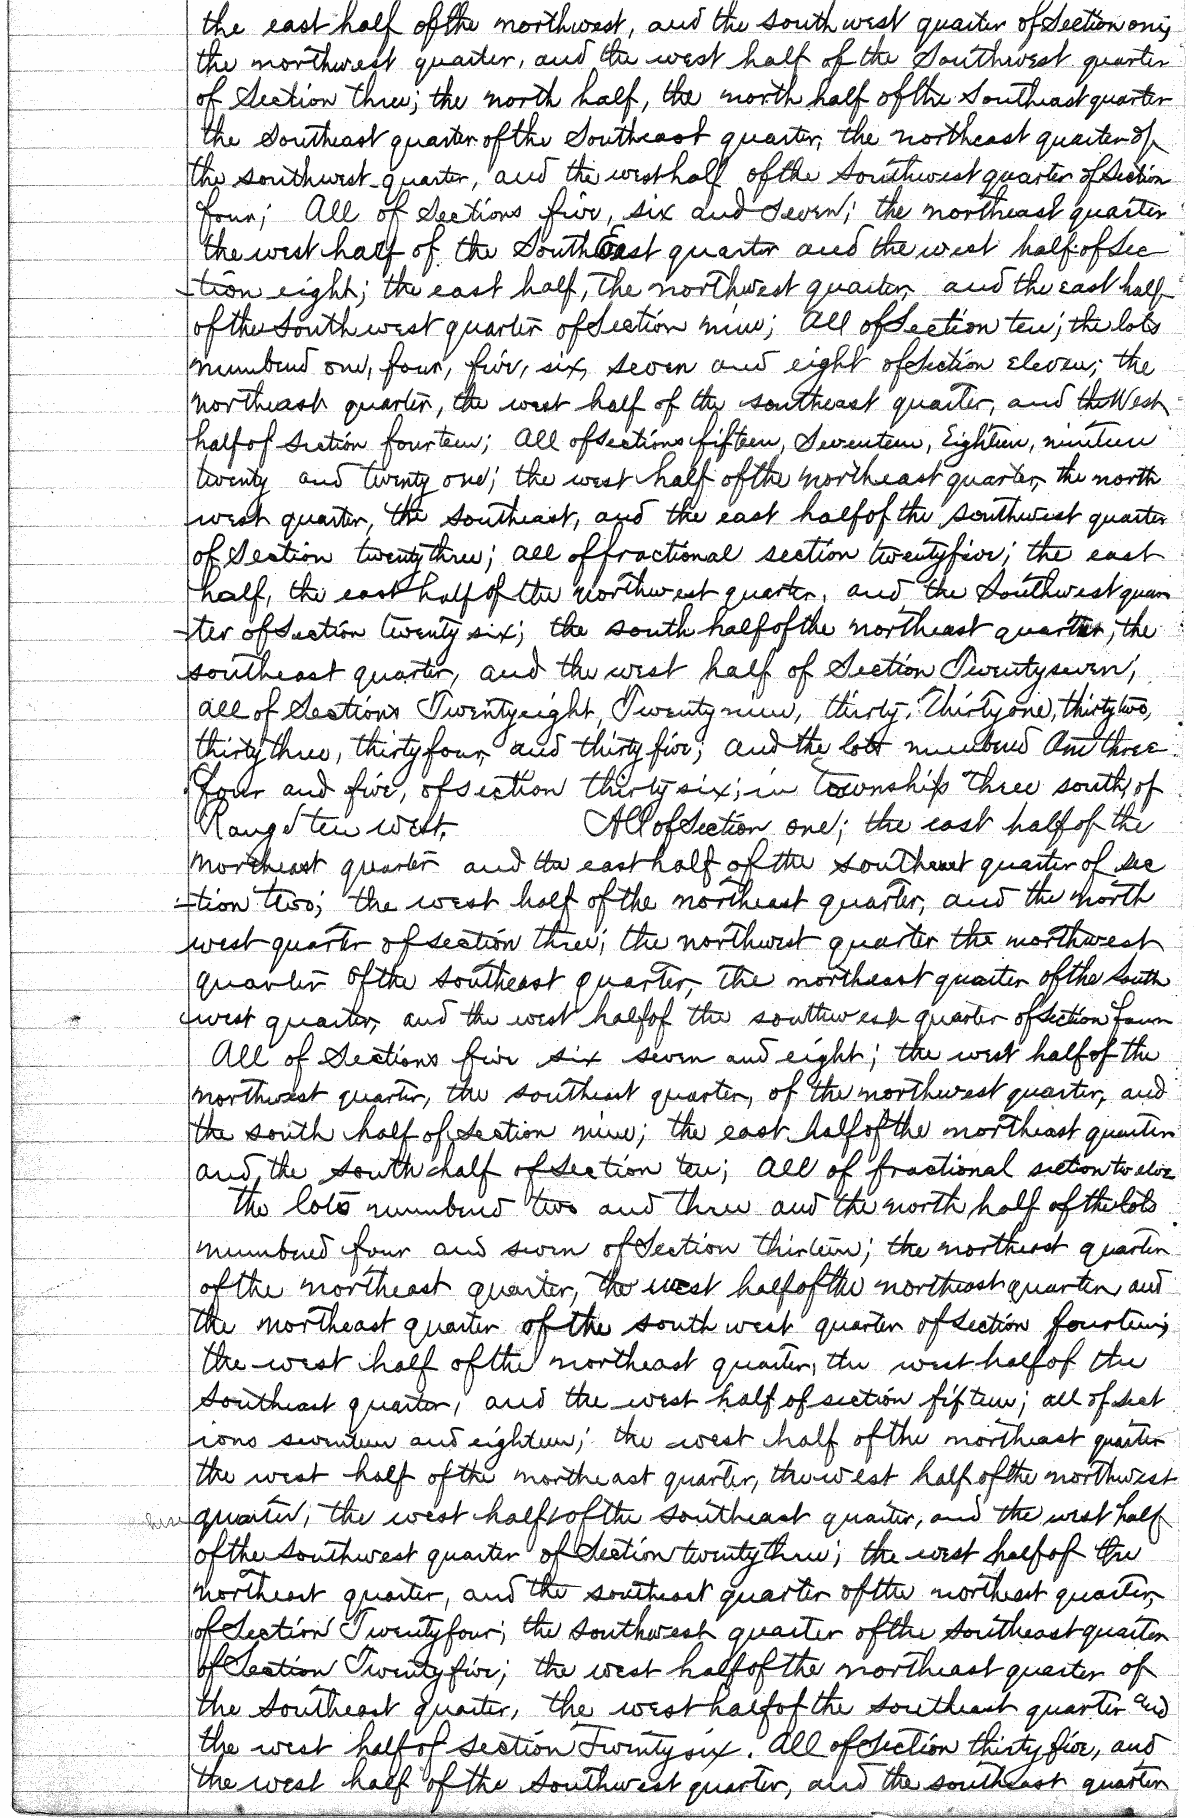 the east half of the northwest, and the southwest quarter of Section one;
the northwest quarter, and the west half of the Southwest quarter
of Section three; the north half, the north half of the Southeast quarter
the Southeast quarter of the Southeast quarter, the northeast quarter of
the southwest quarter, and the west half of the Southwest quarter of Section
four; All of Sections five, six and Seven; the northeast quarter
the west half of the SouthEast quarter and the west half of Sec
-tion eight; the east half, the northwest quarter, and the east half
of the South west quarter of Section nine; All of Section ten; the lots
numbered one, four, five, six, seven and eight of Section Eleven; the
northeast quarter, the west half of the southeast quarter, and the West
half of Section fourteen; All of Sections fifteen, Seventeen, Eighteen, nineteen
twenty and twenty one; the west half of the northeast quarter, the north
west quarter, the southeast, and the east half of the southwest quarter
of Section twenty three; all of fractional section twenty five; the east
half, the east half of the northwest quarter, and the Southwest quar
-ter of Section twenty six; the south half of the northeast quarter, the
southeast quarter, and the west half of Section Twenty seven;
all of Sections Twenty eight, Twenty nine, thirty, Thirty one, thirty two,
thirty three, thirty four, and thirty five; and the lots numbered One three
four and five, of section thirty six; in township three south, of
Range ten west. All of Section one; the east half of the
northeast quarter and the east half of the southeast quarter of Sec
-tion two; the west half of the northeast quarter, and the north
west quarter of section three; the northwest quarter the northwest
quarter of the southeast quarter, the northeast quarter of the South
west quarter, and the west half of the southwest quarter of Section four
All of Sections five six seven and eight; the west half of the
northwest quarter, the southeast quarter, of the northwest quarter, and
the south half of Section nine; the east half of the northeast quarter
and, the south half of Section ten; All of fractional section twelve
The lots numbered two and three and the north half of the lots
numbered four and seven of Section thirteen; the northeast quarter
of the northeast quarter, the west half of the northeast quarter and
the northeast quarter of the south west quarter of Section fourteen;
the west half of the northeast quarter, the west half of the
Southeast quarter, and the west half of section fifteen; all of sect
ions seventeen and eighteen; the west half of the northeast quarter
the west half of the northeast quarter, the west half of the northwest
quarter, the west half of the southeast quarter, and the west half
of the Southwest quarter of Section twenty three; the west half of the
northeast quarter, and the southeast quarter of the northeast quarter,
of Section Twenty four; the southwest quarter of the Southeast quarter
of Section Twenty five; the west half of the northeast quarter of
the Southeast quarter, the west half of the southeast quarter and
the west half of section Twenty six. All of Section thirty five, and
the west half of the Southwest quarter, and the southeast quarter